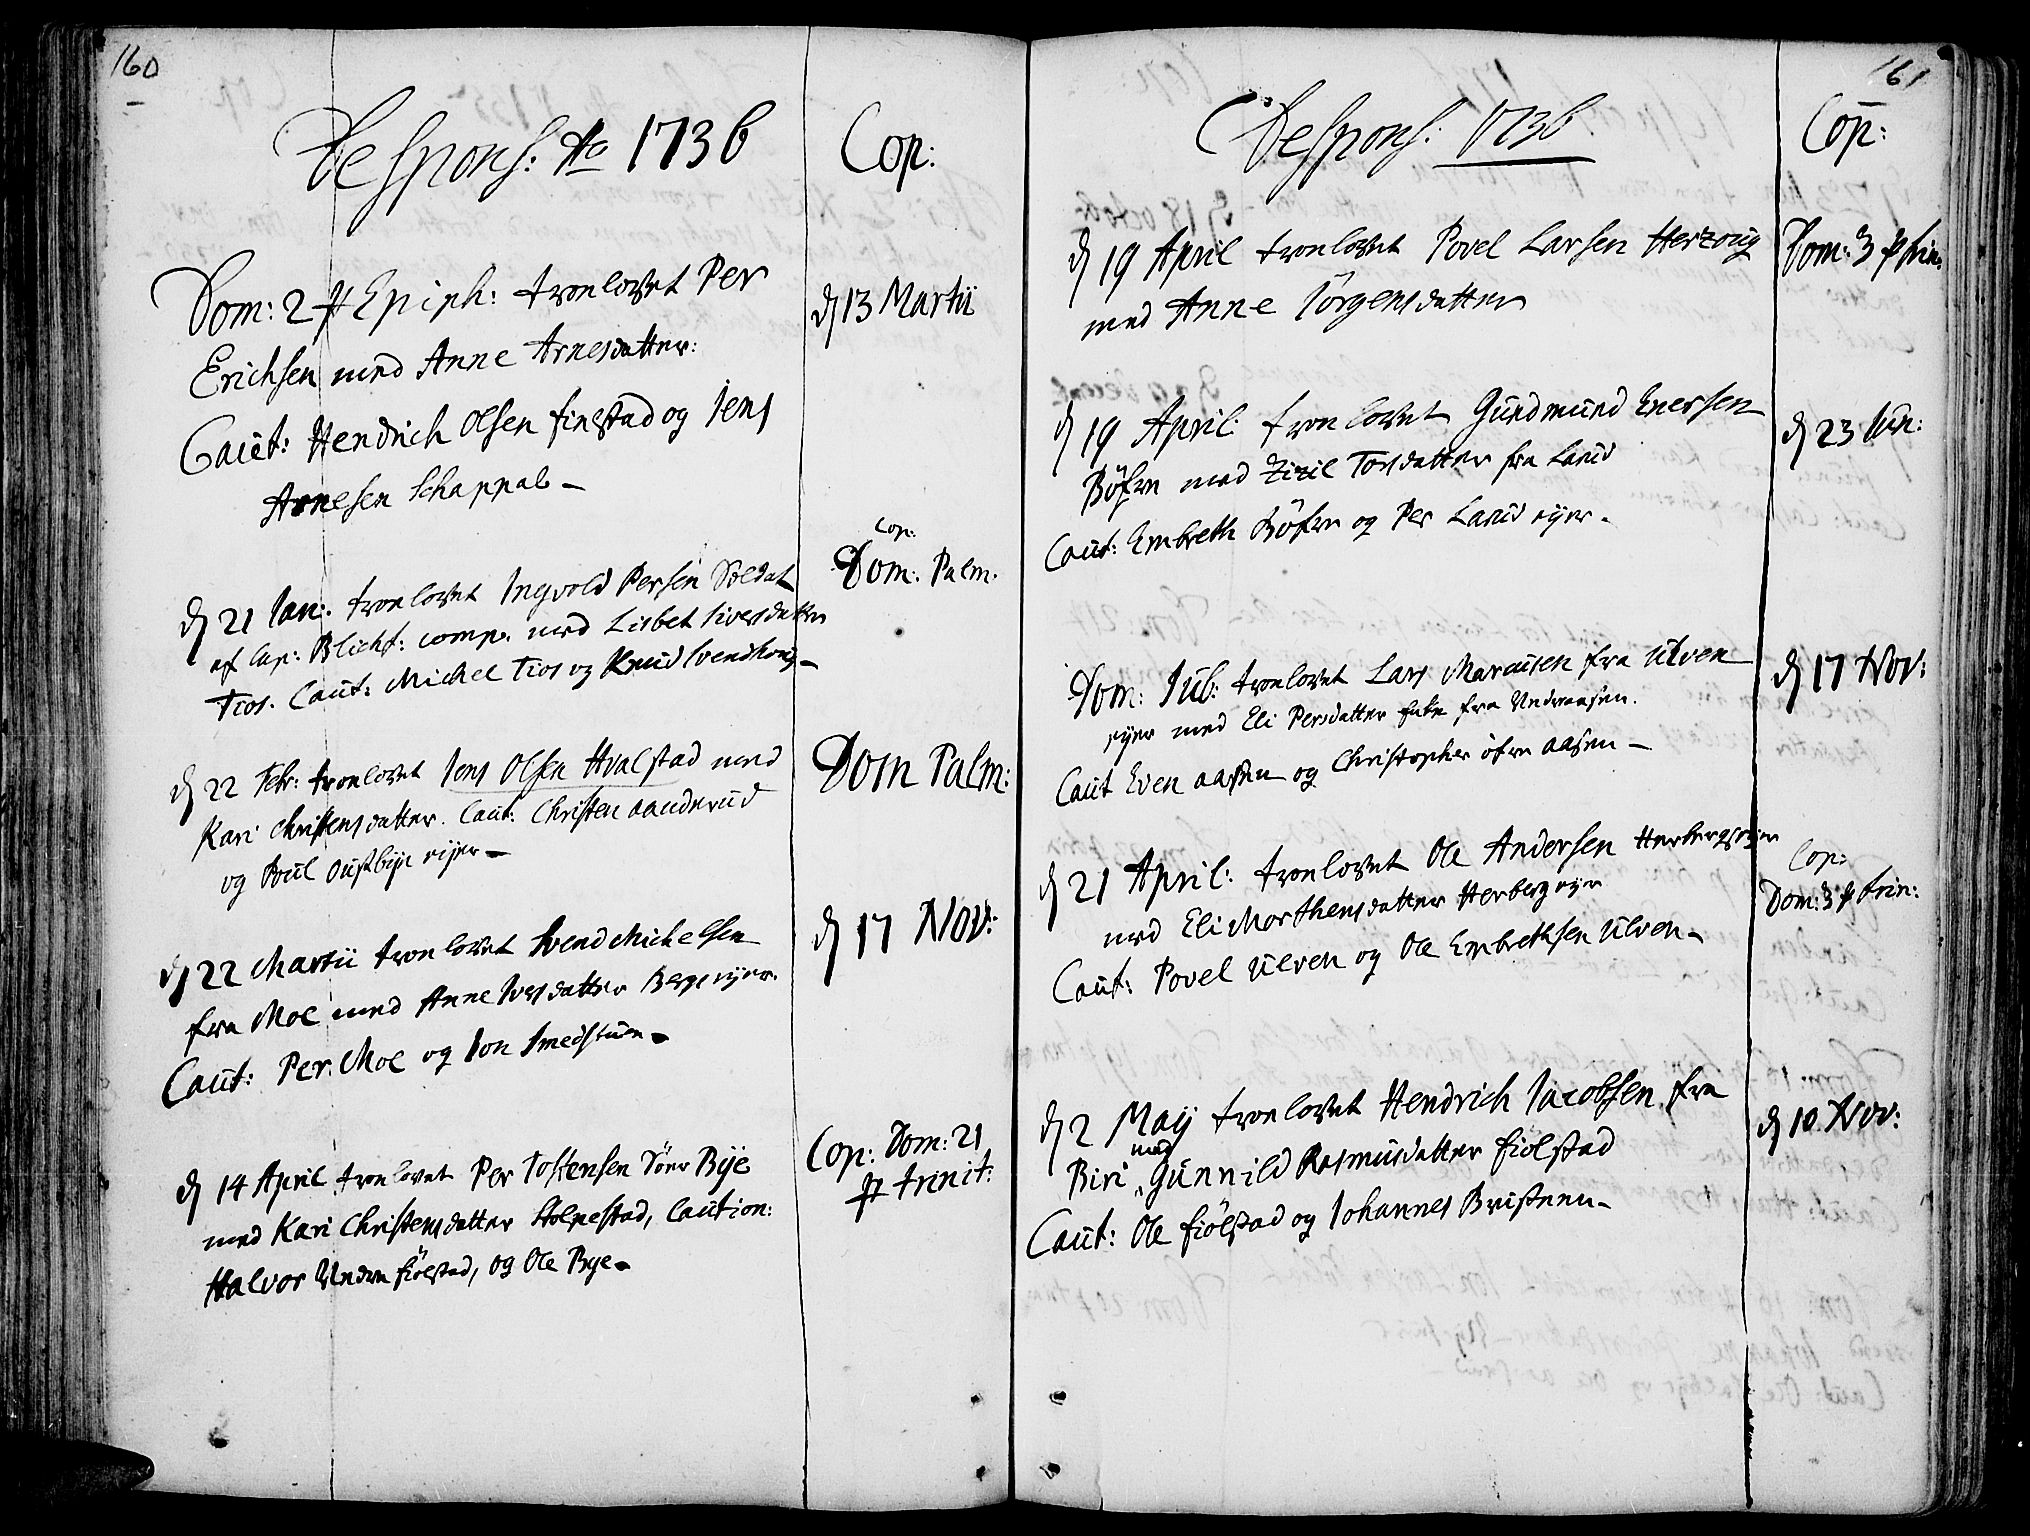 160
Despons: Ao 1736
Cop:
Dom: 2 p Epiph: troelovet Per
Erichsen med Anne Arnesdatter:
Caut: Hendrich Olsen finstad og Jens
Arnesen Schappal –
d 13 Martii
d 21 Jan: troelovet Ingvold Persen Soldat
af Cap: Blicht: comp. med Lisbet Siversdatter
Tios. Caut: Michel Tios og Knud
Cop:
Dom: Palm.
d 22 Febr: troelovet Jens Olsen Hvalstad med
Kari Christensdatter. Caut: Christen aanderud
og Poul Oustbye eijer –
Dom Palm:
d 22 Martii troelovet Svend Michelsen
fra Moe med Anne Iversdatter Berge eijer.
Caut: Per Moe og Jon Smedstuen –
d 17 Nov:
d 14 April troelovet Per Tostensen Söer Bye
med Kari Christensdatter Stolpestad, Caution:
Halvor Nedre fiölstad, og Ole Bye –
Cop: Dom: 21
p trinit:
161
Despons: 1736
Cop:
d 19 April troelovet Povel Larsen Herzoug
med Anne Jörgensdatter
Dom: 3 p trin:
d 19 April: troelovet Gundmund Enersen
Böfre med Zizil Torsdatter fra Laud
Caut: Embreth Böfre og Per Laud eijer –
d 23 Jun:
Dom: Jub: troelovet Lars Marcusen fra Ulven
eijer med Eli Persdatter Enke fra Nedreaasen.
Caut Even aasen og Christopher öfre aasen –
d 17 Nov:
d 21 April: troelovet Ole Andersen
med Eli Morthensdatter Herberg eije
Caut: Povel Ulven og Ole Embrethsen Ulven –
Cop:
Dom: 3 p trin:
d 2 Maij troelovet Hendrich Jacobsen fra
Biri med Gunnild Rasmusdatter fiölstad
Caut: Ole fiölstad og Johannes Bristeen –
d 10 Nov: